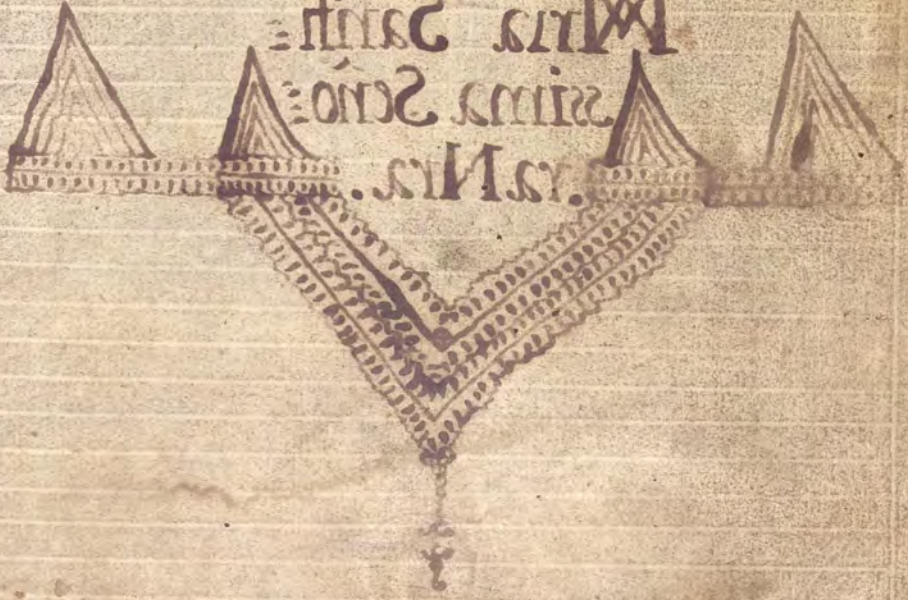 Maria Santi=
ssima Seño=
.ra Nra.